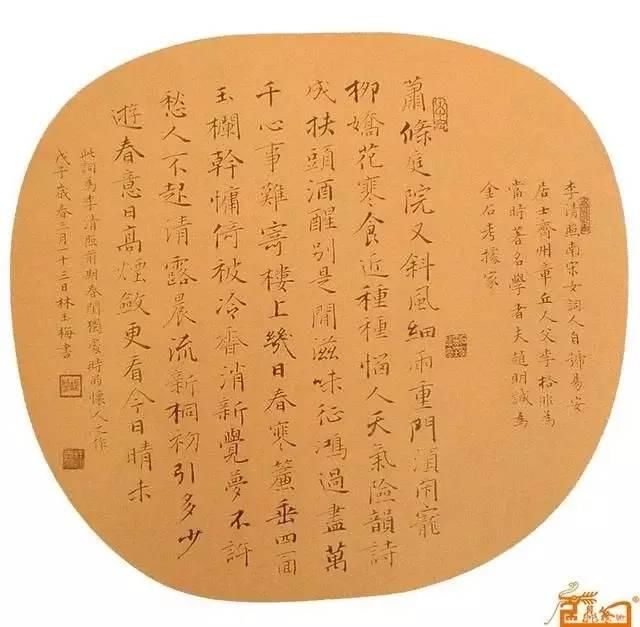 李清照南宋女詞人自號易安
居士齊州章丘人父李格非爲
當時著名學者夫趙明誠爲
金石考據家
蕭條庭院又斜風細雨重門須閉寵
柳嬌花寒食近種種惱人天氣險韻詩
成扶頭酒醒別是閒滋味征鴻過盡萬
千心事難寄樓上幾日春寒簾垂四面
玉欄幹慵倚被冷香消新覺夢不許
愁人不起清露晨流新桐初引多少
遊春意日高煙斂更看今日晴未
此詞爲李清照前期春閨獨處時懷人之作
戊子歲春三月十三日林玉梅書